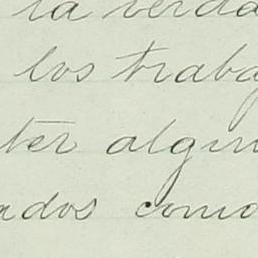 la verda
los traba
ter algun
ados como